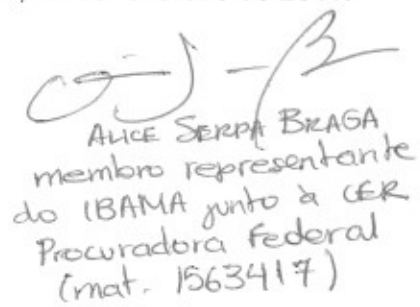 ALICE SERPA BRAGA
membro representante
do IBAMA junto à CER
Procuradora Federal
(mat. 1563417)